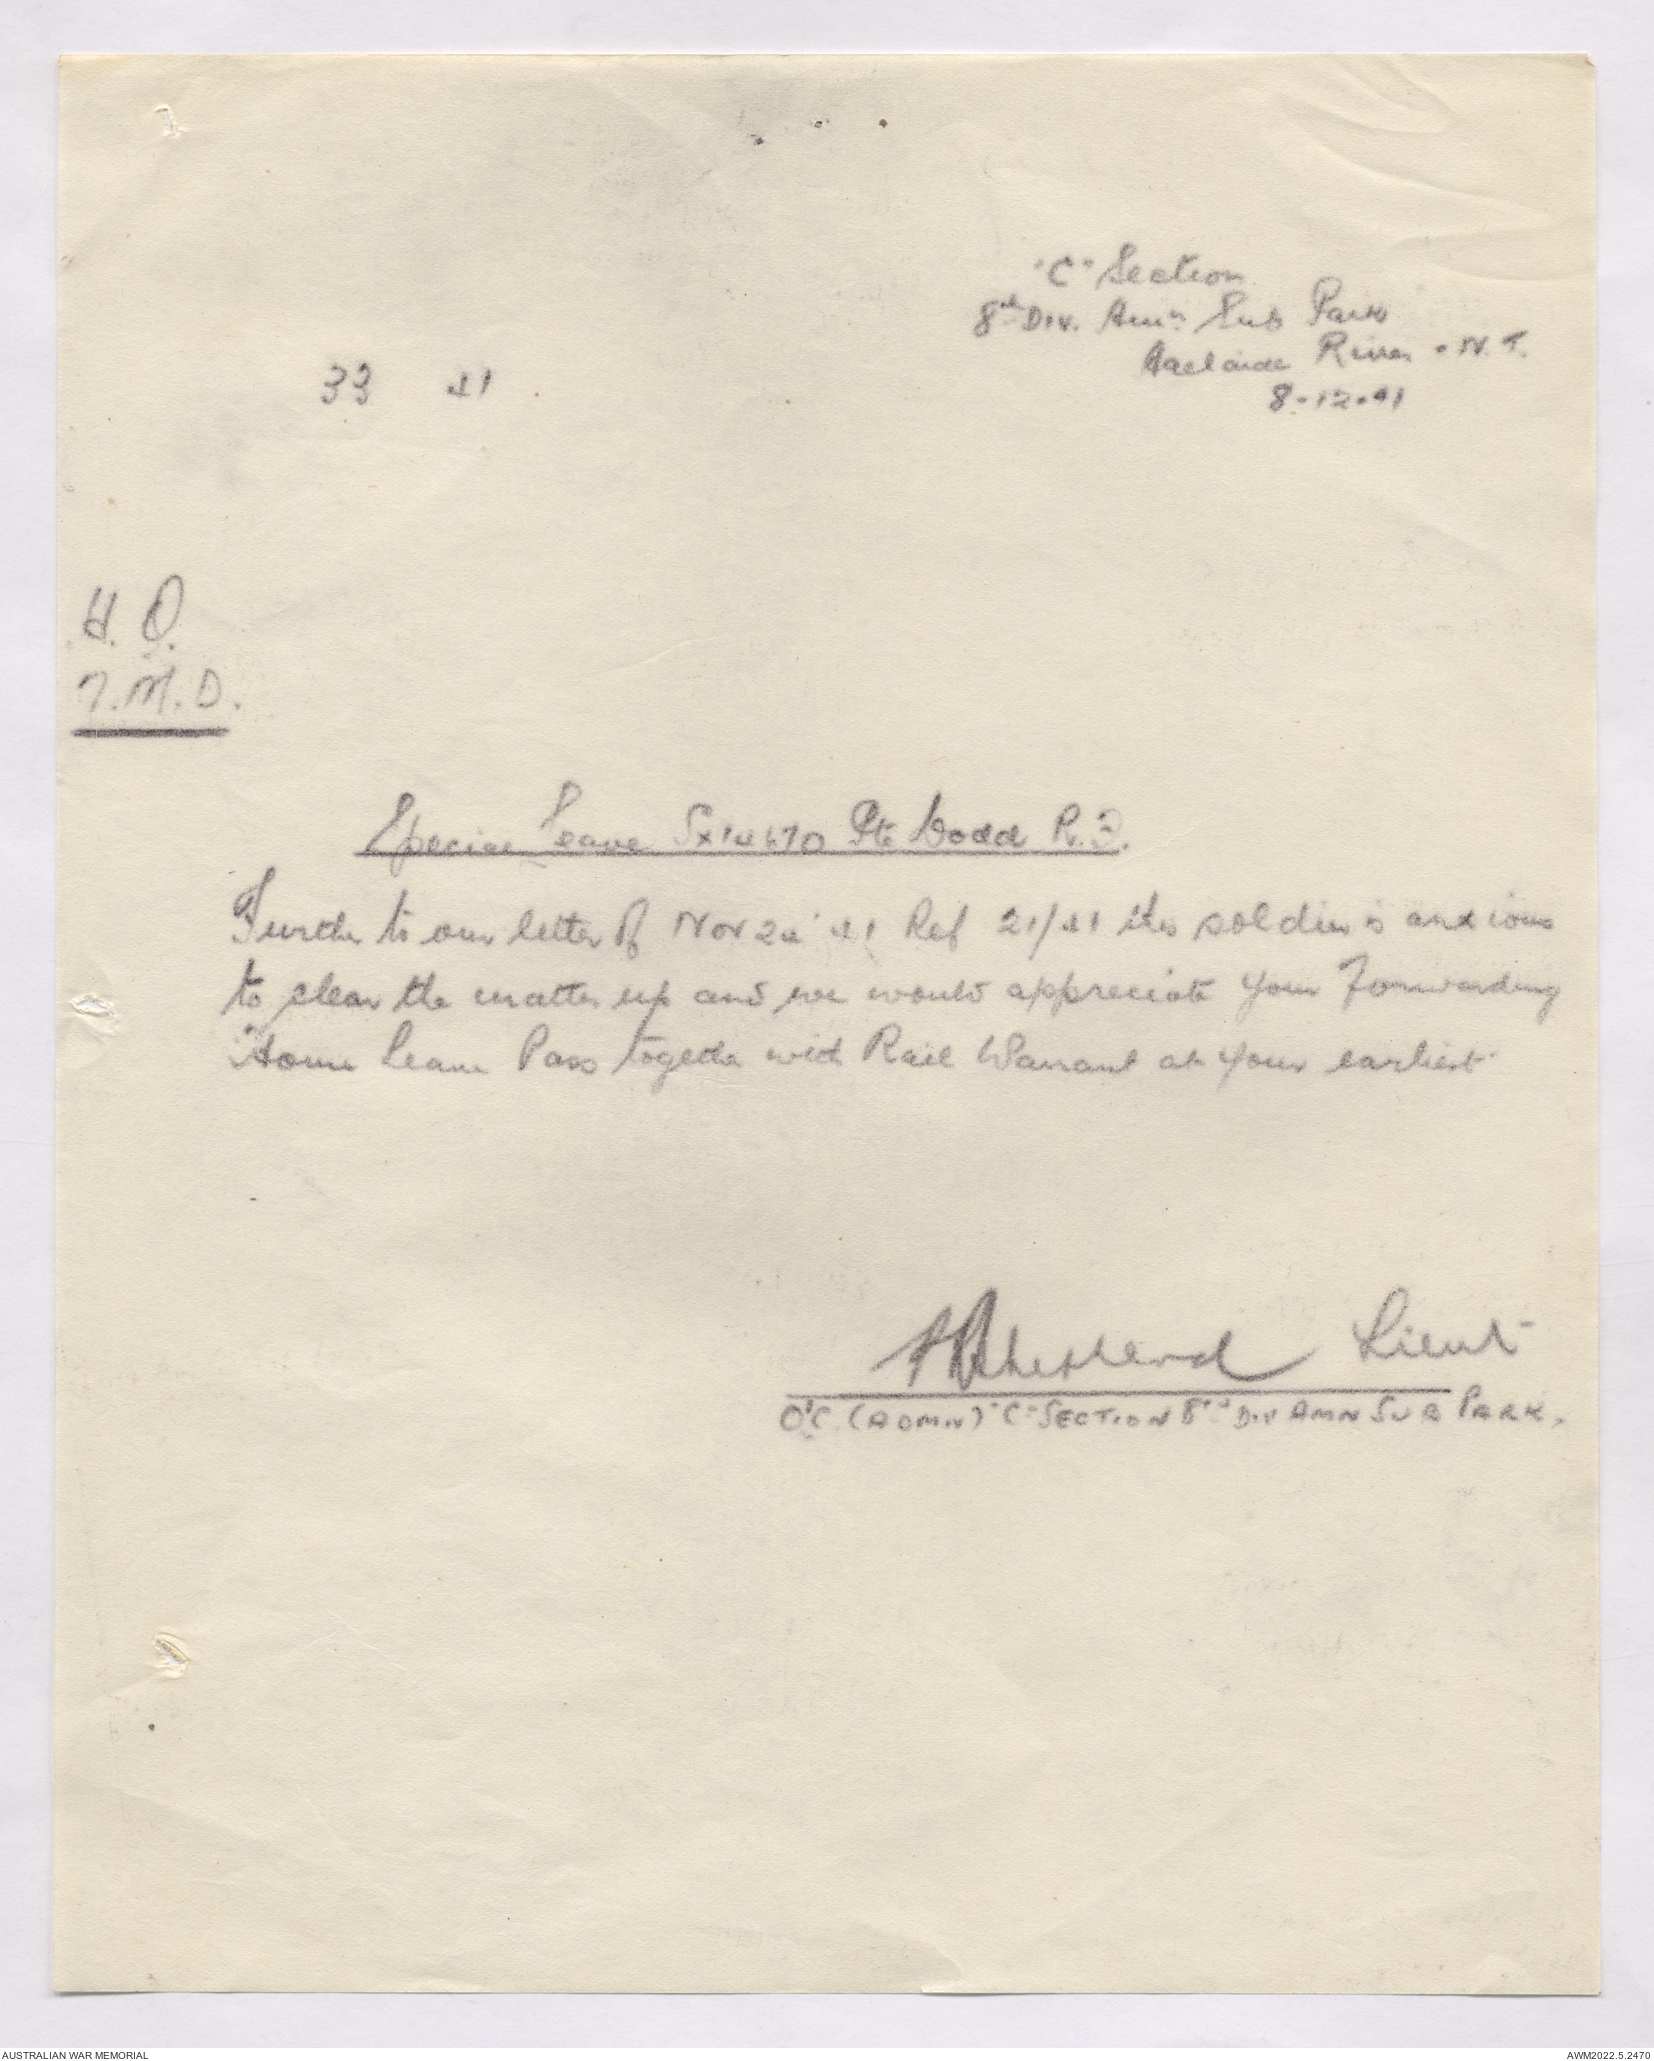 "C" Section
8th Div. Amn Sub Park
Adelaide River - N.T.
8-12-41
33 41.
H.Q.
7.M.D.
Special Leave Sx14670 Pte Dodd R.J.
Further to our letter of Nov 24 '41 Ref 21/41 this soldier is anxious
to clear the matter up and we would appreciate your Forwarding
Home Leave Pass together with Rail Warrant at your earliest
Shepherd Lieut
O'C. (ADMN) "C" SECTION 8th DIV AMN SUB PARK.
AUSTRALIAN WAR MEMORIAL
AWM2022.5.2470